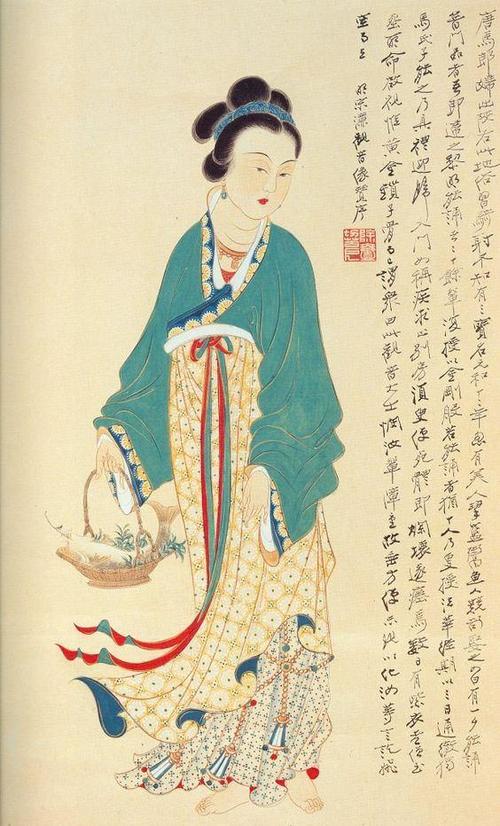 唐馬郎婦出陝右此地俗習騎射不知有三寶名元和十二年忽有美人挈籃鬻魚人競欲娶之曰有一夕能誦
普門品者吾即適之黎明能誦者二十餘輩復授以金剛般若能誦者猶十人乃更授法華經期以三日通徹獨
馬氏子能之乃具禮迎歸入門女稱疾求止別房須臾便死體即爛壞遂瘞焉數日有紫衣老僧至
塟所命啟視惟黃金鎖子骨存焉謂眾曰此觀音大士憫汝輩障重故垂方便示現以化汝等言訖飛
空而去 明宋濂觀音像贊序